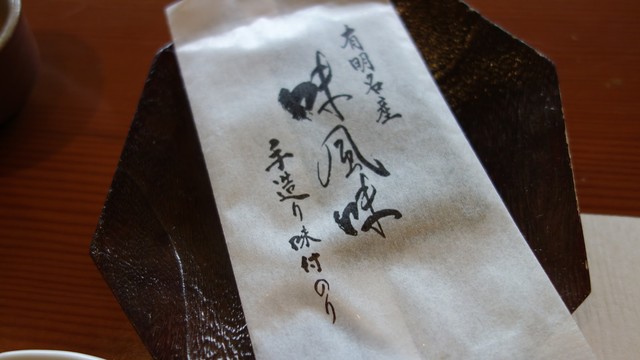 有明名産
味風味
手造り味付のり